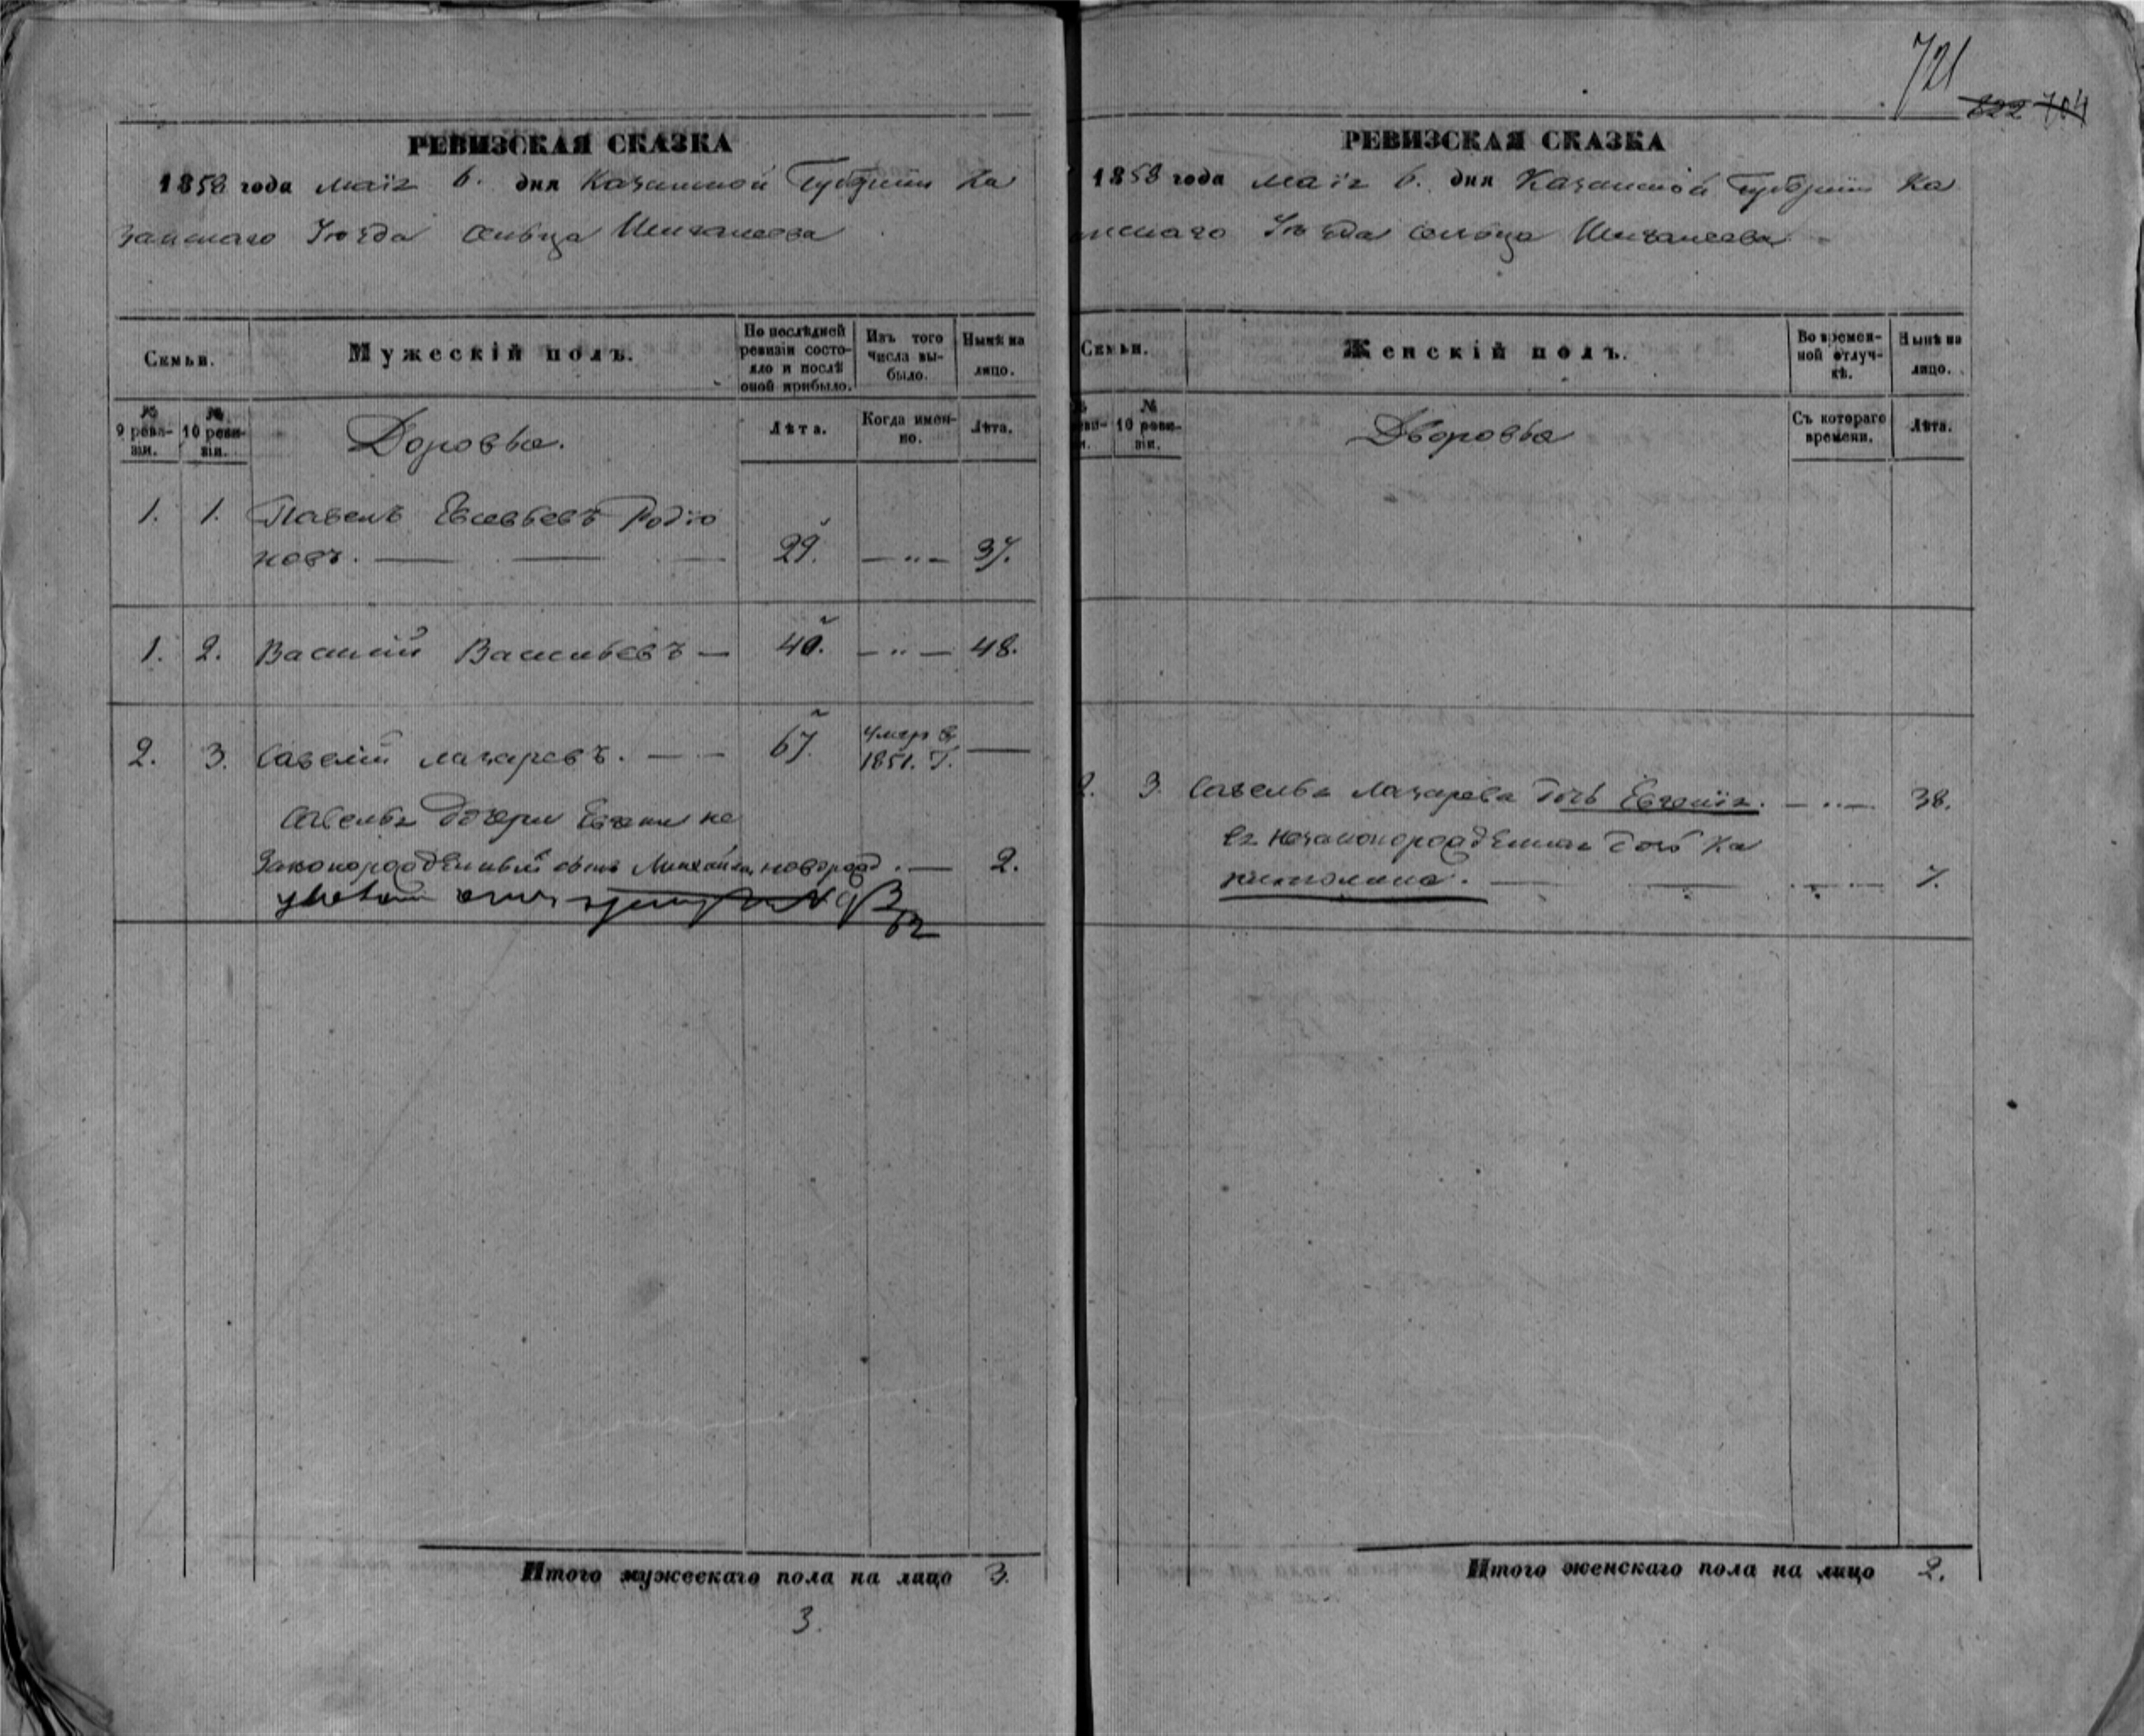 721
822 704
РЕВИЗСКАЯ СКАЗКА
1858 года маія 6. дня Казанской Губерніи Ка
занскаго Уѣзда сельца Шигалеева
Семьи.
Мужескій полъ.
По послѣдней ревизіи состояло и послѣ оной прибыло.
Изъ того числа выбыло.
Нынѣ на лицо.
№ 9 ревизіи.
№ 10 ревизіи.
Дворовые.
Лѣта.
Когда именно.
Лѣта.
1. 1. Павелъ Евсевьевъ Родіо
новъ. 29. — „ — 37.
1. 2. Василій Васильевъ — 40. — „ — 48.
2. 3. Савелій Лазаревъ. — 67. умеръ въ 1851. Г. —
Савелья дочери Евгеніи не
законорожденный сынъ Михаилъ, новорожд. — 2.
Итого мужескаго пола на лицо 3.
3.
РЕВИЗСКАЯ СКАЗКА
1858 года маія 6. дня Казанской Губерніи Ка
нскаго Уѣзда сельца Шигалеева
Семьи.
Женскій полъ.
Во временной отлучкѣ.
Нынѣ на лицо.
№ 10 ревизіи.
Дворовые
Съ котораго времени.
Лѣта.
2. 3. Савелья Лазарева дочь Евгенія. — „ — 38.
Ея незаконорожденная дочь Ка
питолина. — 7.
Итого женскаго пола на лицо 2.